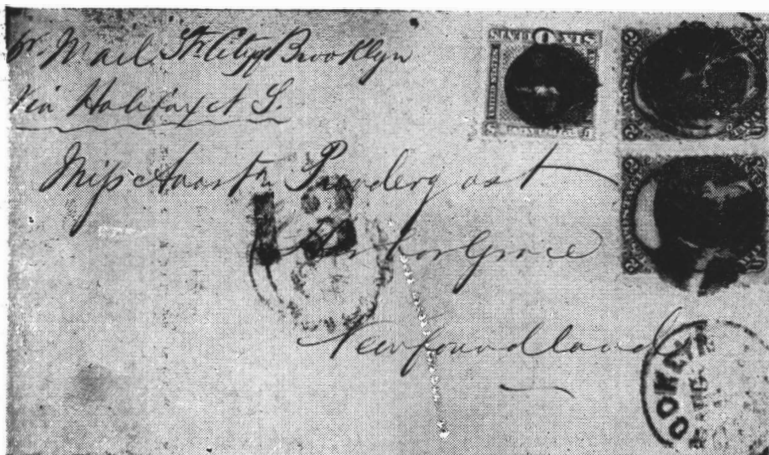 pr. Mail Str City of Brooklyn
Via Halifax N S.
Miss Anast Prendergast
Harbor Grace
Newfoundland
OOKLYN
AUG